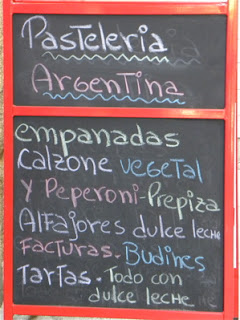 Pasteleria
Argentina
empanadas
Calzone vegetal
y Peperoni-Prepiza
Alfajores dulce leche
Facturas. Budines
Tartas. Todo con
dulce leche